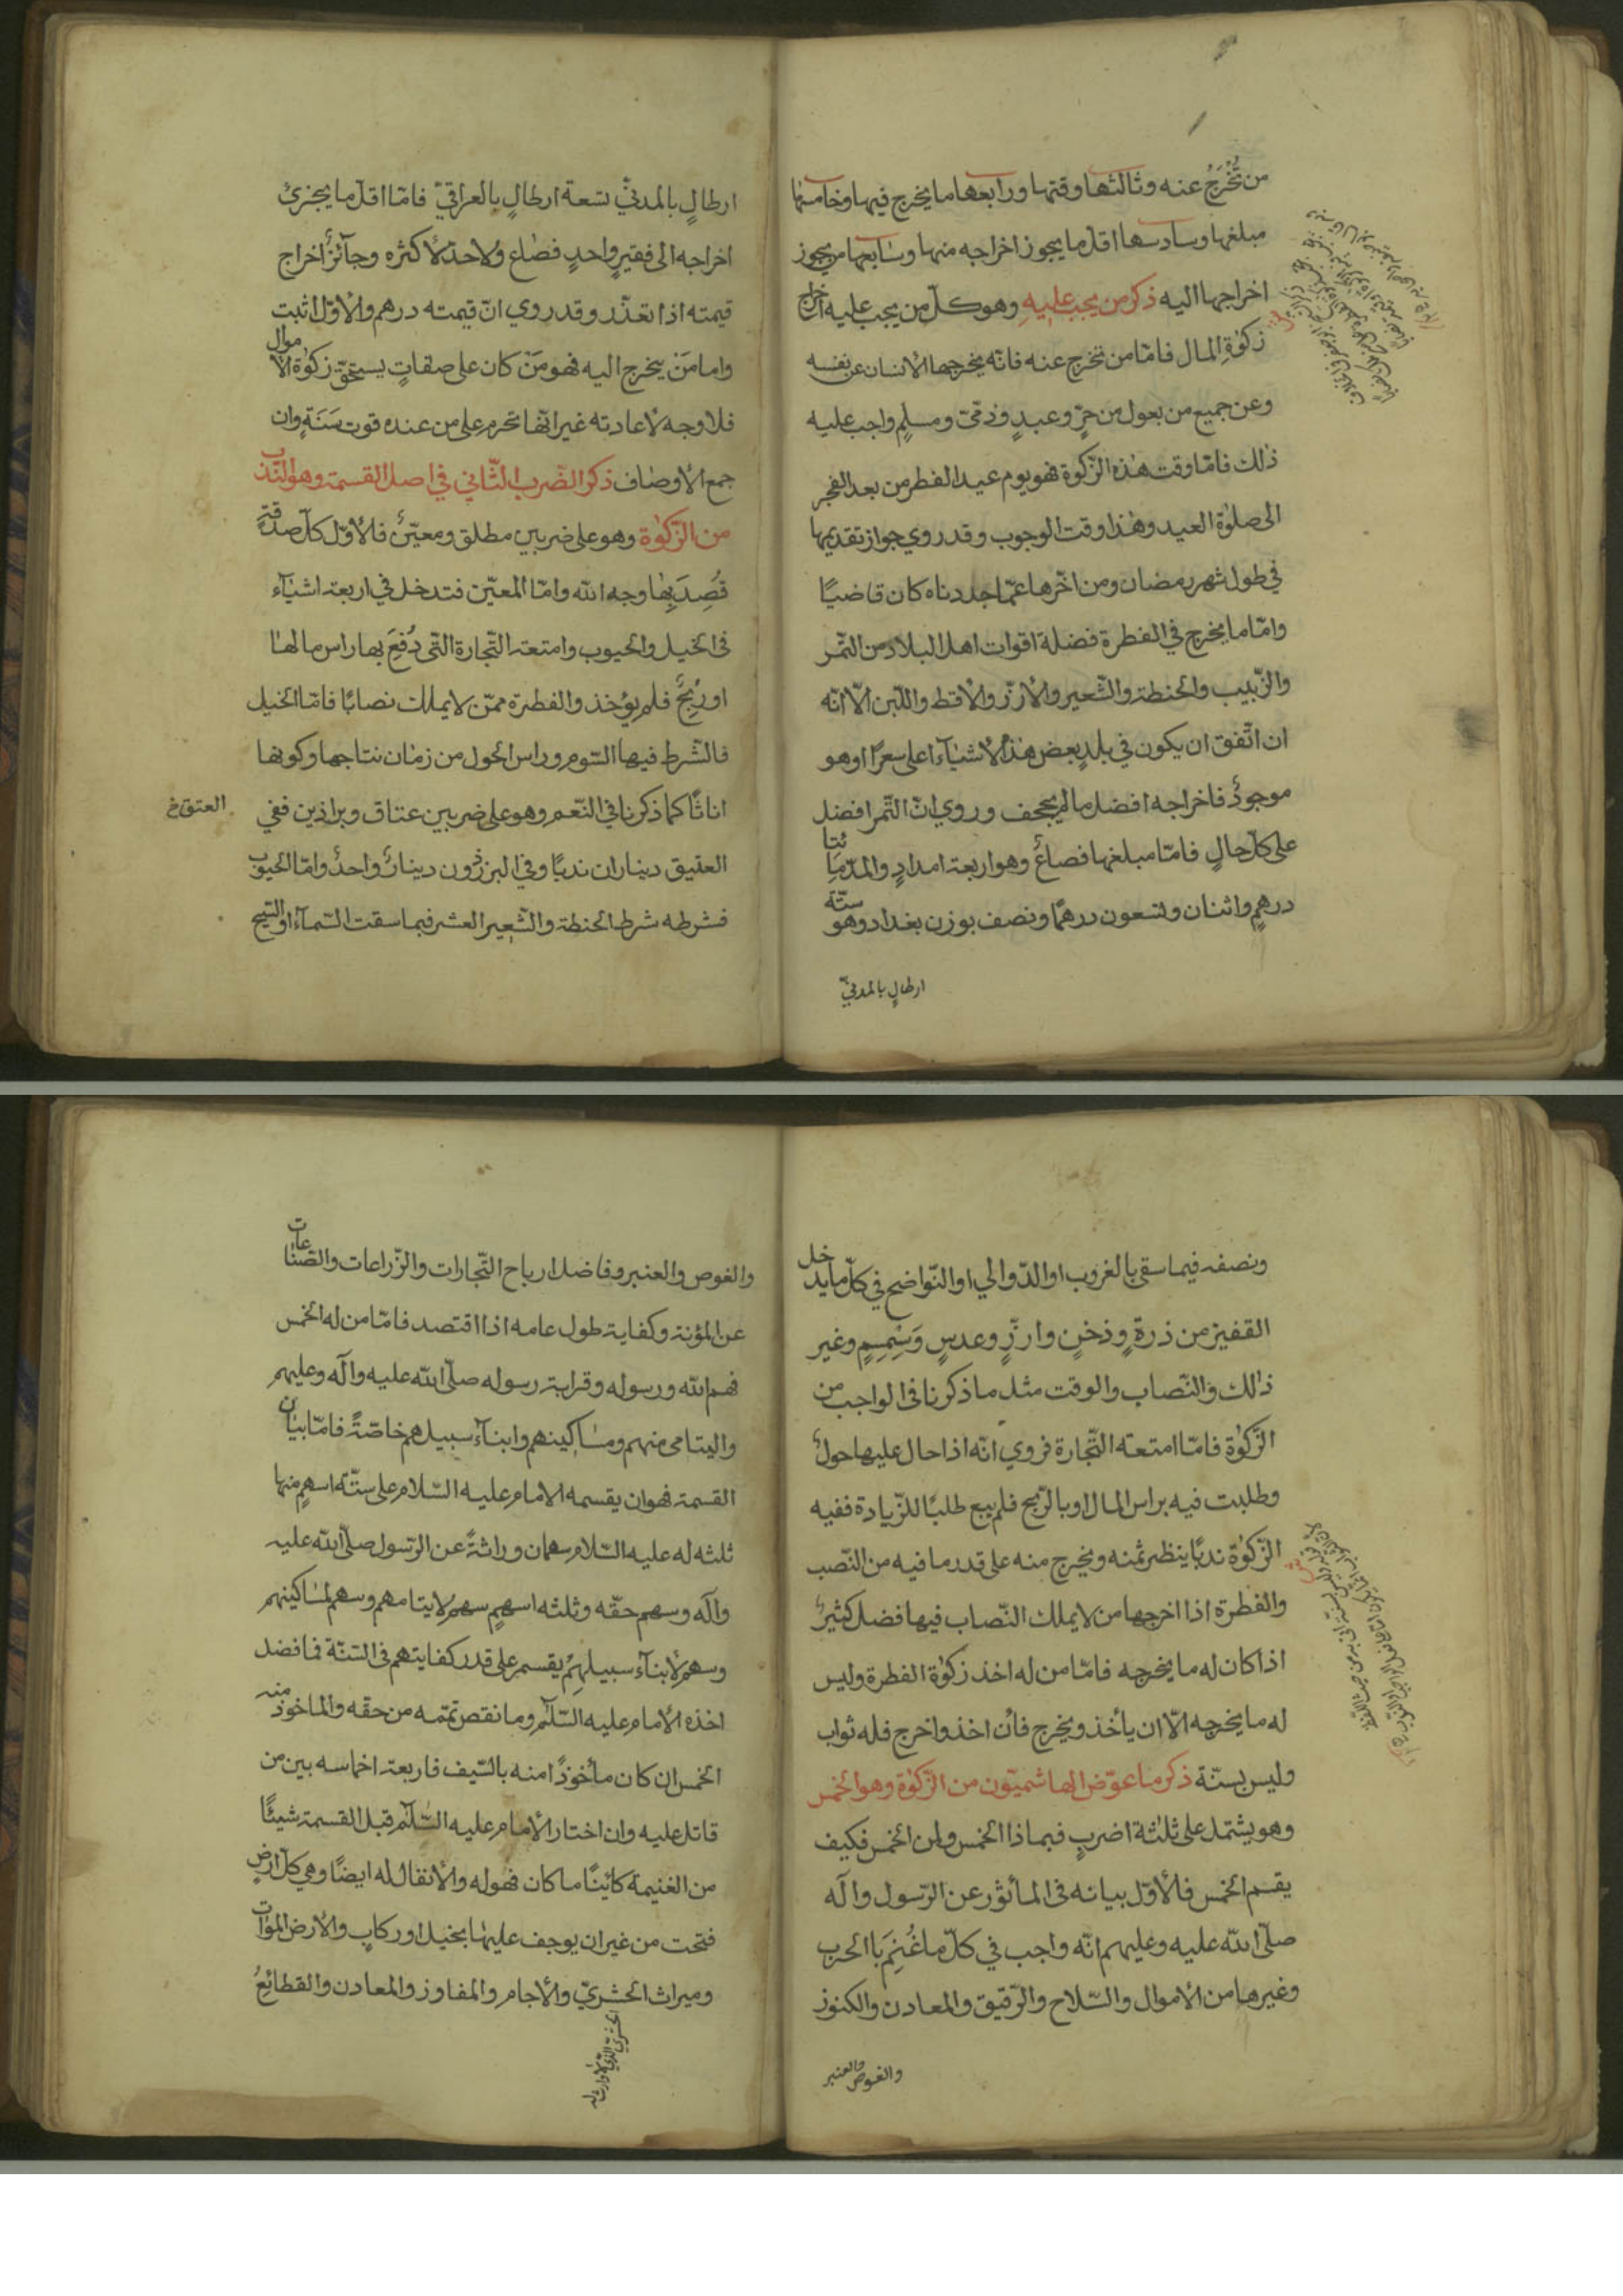 من تُخْرَجُ عنه وثالثها وقتها ورابعها ما يخرج فيها وخامسها
مبلغها وسادسها اقلّ ما يجوز اخراجه منها وسابعها من يجوز
اخراجها اليه ذكر من يجب عليه وهو كلّ من يجب عليه اخراج
زكوة المال فامّا من تخرج عنه فانّه يخرجها الانسان عن نفسه
وعن جميع من يعول من حرٍّ وعبدٍ وذمّىّ ومسلمٍ واجب عليه
ذلك فامّا وقت هذه الزّكوة فهو يوم عيد الفطر من بعد الفجر
الى صلوة العيد وهذا وقت الوجوب وقد روي جواز تقديمها
في طول شهر رمضان ومن اخّرها عمّا حددناه كان قاضيًا
وامّا ما يخرج في الفطرة فضلة اقوات اهل البلاد من التّمر
والزّبيب والحنطة والشّعير والارزّ والاقط واللّبن الّا انّه
ان اتّفق ان يكون في بلدٍ بعض هذه الاشياء اعلى سعرًا وهو
موجودٌ فاخراجه افضل ما لم يجحف وروي انّ التّمر افضل
على كلّ حالٍ فامّا مبلغها فصاعٌ وهو اربعة امدادٍ والمدّ مِائتا
درهمٍ واثنان وتسعون درهمًا ونصف بوزن بغداد وهو ستّة
ارطالٍ بالمدنيّ
ارطالٍ بالمدنيّ تسعة ارطالٍ بالعراقيّ فامّا اقلّ ما يجزئ
اخراجه الى فقيرٍ واحدٍ فصاع ولا حدّ لاكثره وجآئزٌ اخراج
قيمته اذا تعذّر وقد روي انّ قيمته درهم والاوّل اثبت
واما مَنْ يخرج اليه فهو مَنْ كان على صفاتٍ يستحقّ زكوة الاموال
فلا وجه لاعادته غير انّها تحرم على من عنده قوت سَنَةٍ وان
جمع الاوصاف ذكر الضّرب الثّاني في اصل القسمة وهو النّدب
من الزّكوة وهو على ضربين مطلق ومعيّنٌ فالاوّل كلّ صدقة
قُصِدَ بِها وجه الله وامّا المعيّن فتدخل في اربعة اشيآء
فى الخيل والحبوب وامتعة التّجارة التّى دُفِعَ بها راس مالها
او رِبْحٌ فلم يؤخذ والفطرة ممّن لا يملك نصابًا فامّا الخيل
فالشّرط فيها السّوم وراس الحول من زمان نتاجها وكونها
اناثًا كما ذكرنا في النّعم وهو على ضربين عتاق وبراذين ففي
العتق خ
العتيق ديناران ندبًا وفي البرذون دينارٌ واحدٌ وامّا الحبوب
فشرطه شرط الحنطة والشّعير العشر فيما سقت السّمآء او السّيح
ونصفه فيما سقى بالغروب او الدّوالي او النّواضح في كلّ ما يدخل
القفيز من ذرةٍ ودخنٍ وارزٍّ وعدسٍ وَسِمسِمٍ وغير
ذلك والنّصاب والوقت مثل ما ذكرنا فى الواجب من
الزّكوة فامّا امتعة التّجارة فروي انّه اذا حال عليها حولٌ
وطلبت فيه براس المال او بالرّبح فلم يبع طلبًا للزّيادة ففيه
الزّكوة ندبًا ينظر ثمنه ويخرج منه على قدر ما فيه من النّصب
والفطرة اذا اخرجها من لا يملك النّصاب فيها فضل كثيرٌ
اذا كان له ما يخرجه فامّا من له اخذ زكوة الفطرة وليس
له ما يخرجه الّا ان يأخذ ويخرج فأن اخذ واخرج فله ثواب
وليس بسنّة ذكر ما عوّض الهاشميّون من الزّكوة وهو الخمس
وهو يشتمل على ثلثة اضربٍ فيما ذا الخمس ولمن الخمس فكيف
يقسم الخمس فلأوّل بيانه فى المأثور عن الرّسول وآله
صلّى الله عليه وعليهم انّه واجب في كلّ ما غُنِمَ باالحرب
وغيرها من الأموال والسّلاح والرّقيق والمعادن والكنوز
والغوص والعنبر
والغوص والعنبر وفاضل ارباح التّجارات والزّراعات والصّناعات
عن المؤنة وكفاية طول عامه اذا اقتصد فامّا من له الخمس
فهم الله ورسوله وقرابة رسوله صلّى الله عليه وآله وعليهم
واليتامى منهم ومساكينهم وابنآء سبيلهم خاصّةً فامّا بيان
القسمة فهو ان يقسمه الامام عليه السّلام على ستّة اسهم منها
ثلثه له عليه السّلام سهمان وراثةً عن الرّسول صلّى الله عليه
وآله وسهم حقّه وثلثه اسهمٍ سهم لايتامهم وسهم لمساكينهم
وسهم لأبنآء سبيلهم يقسم على قدر كفايتهم فى السّنة فما فضل
اخذه الأمام عليه السّلم وما نقص تمّمه من حقّه والماخوذ منه
الخمس ان كان مأخوذًا منه بالسّيف فاربعة اخماسه بين من
قاتل عليه وان اختار الأمام عليه السّلم قبل القسمة شيئًا
من الغنيمة كائنًا ما كان فهو له والأنفال له ايضًا وهي كلّ ارضٍ
فتحت من غير ان يوجف عليها بخيل او ركابٍ والأرض الموات
وميراث الحشريّ والأجام والمفاوز والمعادن والقطائعُ
الحشريّ الذي لا وارث له